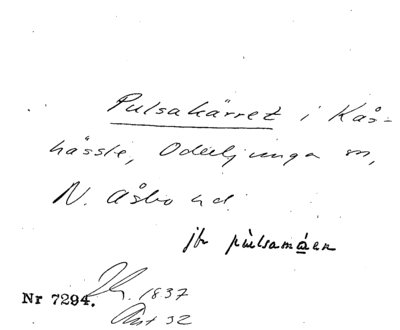 Pulsakärret i Kås-
hässle, Oderljunga sn,
N. Åsbo hd.
jfr pulsamåen
Nr 7294. 1837
32